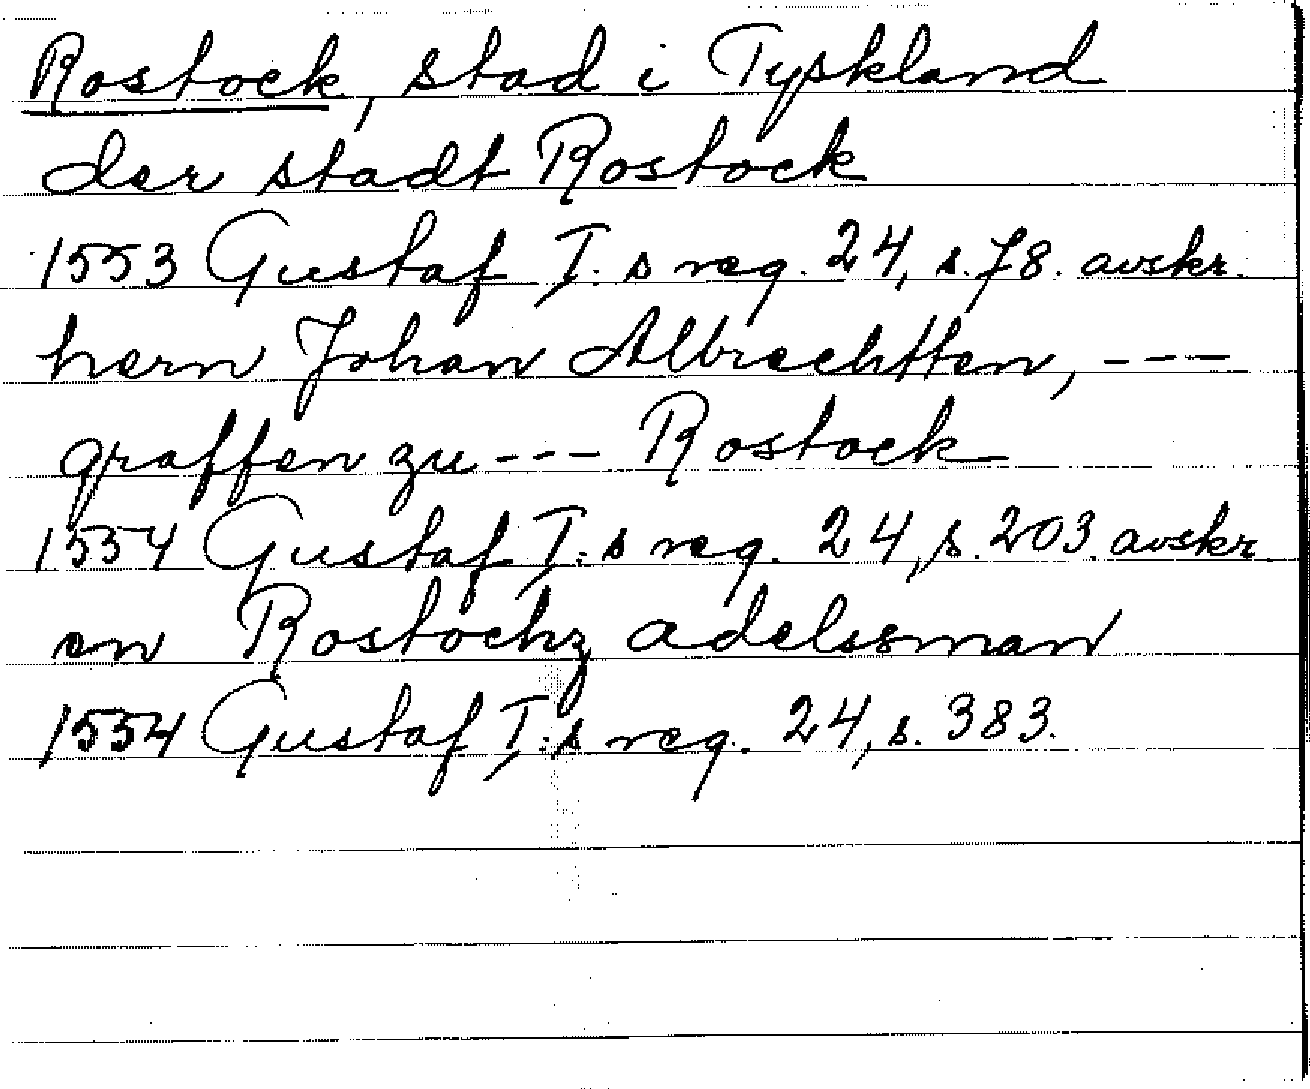 Rostock, stad i Tyskland
der stadt Rostock
1553 Gustaf I:s reg. 24, s. 78. avskr.
hern Johan Albrechtten, ---
graffen zu --- Rostock
1554 Gustaf I:s reg. 24, s. 203. avskr.
en Rostochz adelssman
1554 Gustaf I:s reg. 24, s. 383.